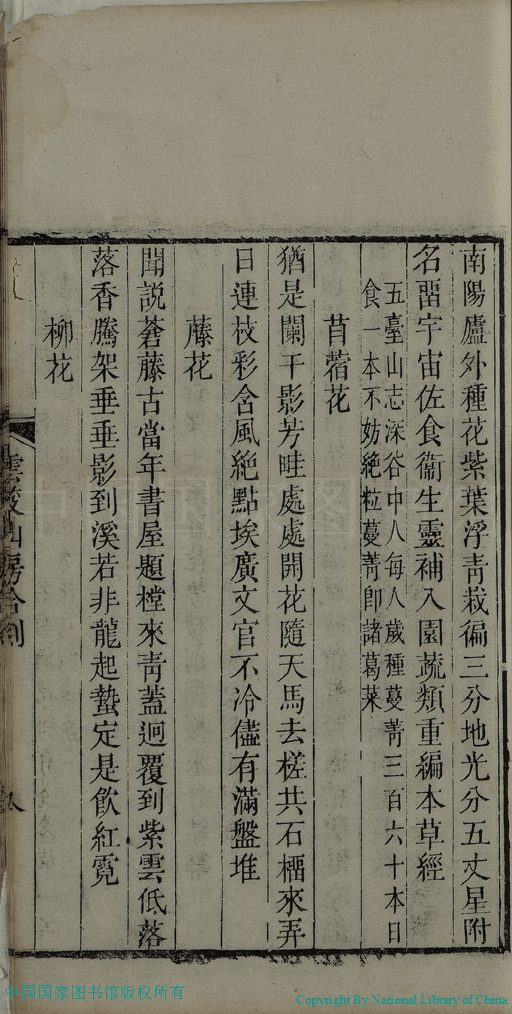 南陽廬外種花紫葉浮青栽徧三分地光分五丈星附
名畱宇宙佐食衞生靈補入園蔬類重編本草經
五臺山志深谷中人每人歲種蔓菁三百六十本日
食一本不妨絶粒蔓菁卽諸葛菜
苜蓿花
猶是闌干影芳畦處處開花隨天馬去槎共石榴來弄
日連枝彩含風絶點埃廣文官不冷儘有滿盤堆
藤花
聞說蒼藤古當年書屋題樘來靑蓋迥覆到紫雲低落
落香騰架垂垂影到溪若非龍起蟄定是飮紅霓
柳花
山房合刻
中国国家图书馆版权所有
Copyright By National Library of China